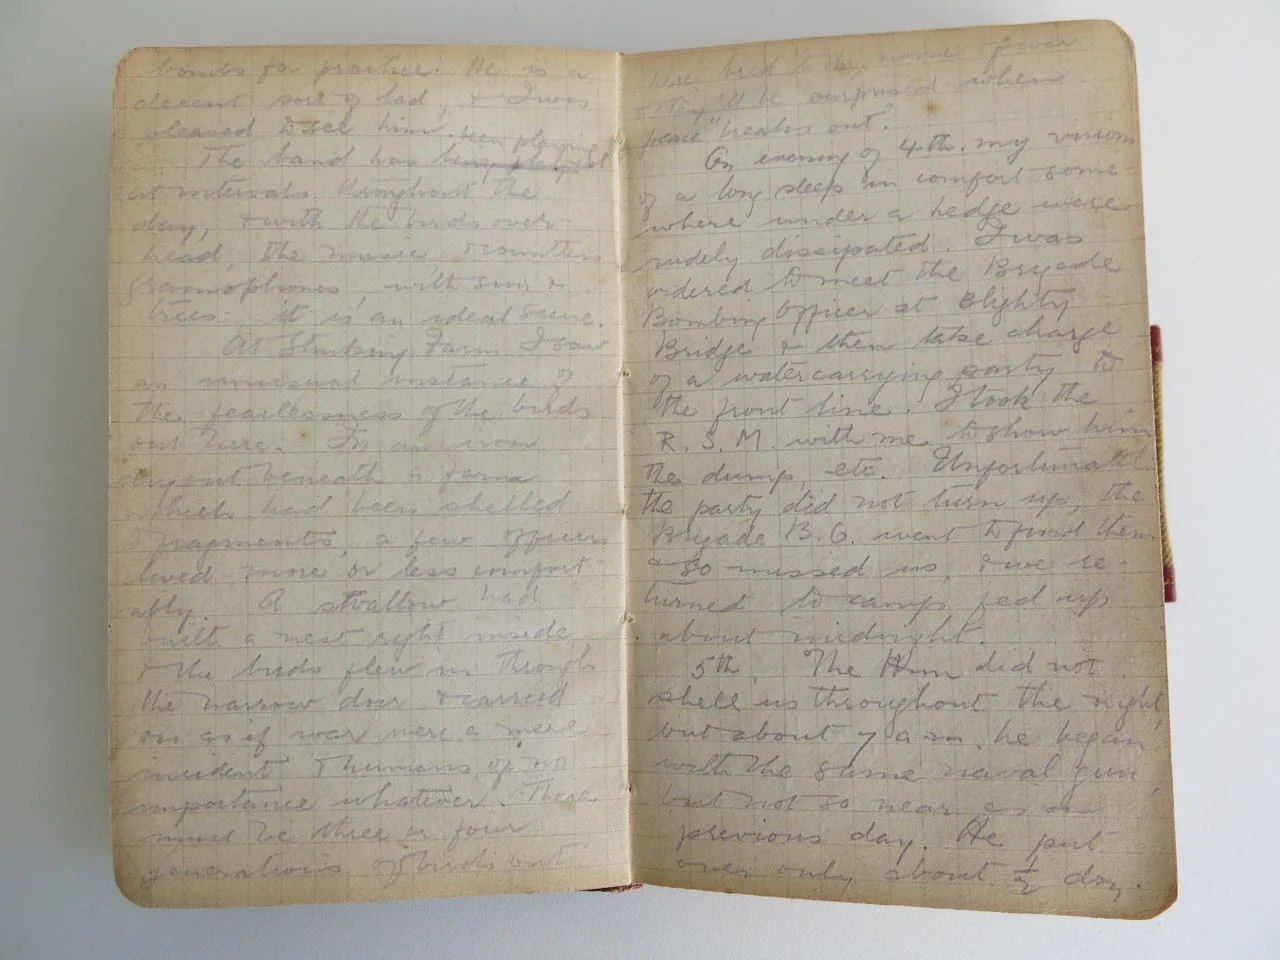 bombs for practice. He is a
decent sort of lad, & I was
pleased to see him".
been playing
The band has being playing
at intervals throughout the
day, & with the birds over-
head, the music & countless
gramophones, with sun &
trees it is an ideal scene.
At Stinking Farm I saw
an unusual instance of
the fearlessness of the birds
out here. In an iron
dugout beneath a farm
which had been shelled
to fragments, a few officers
lived more or less comfort-
ably. A swallow had
built a nest right inside
& the birds flew in through
the narrow door & carried
on as if war were a mere
incident & humans of no
importance whatever. There
must be three or four
generations of birds out
here bred to the noise of war
They'll be surprised when
peace "breaks out."
On evening of 4th. my visions
of a long sleep in comfort some-
where under a hedge were
rudely dissipated. I was
ordered to meet the Brigade
Bombing Officer at Blighty
Bridge & then take charge
of a watercarrying party to
the front line. I took the
R.S.M. with me to show him
the dump, etc. Unfortunately
the party did not turn up, the
Brigade B.O. went to find them
& so missed us, & we re-
turned to camp fed up
about midnight.
5th. The Hun did not
shell us throughout the night,
but about 7 a.m. he began
with the same naval gun,
but not so near as on
previous day. He put
over only about ½ doz.